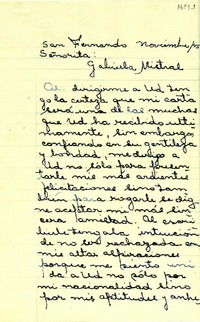 San Fernando noviembre/
Señorita:
Gabriela Mistral
Al dirigirme a Ud ten
go la certeza que mi carta
será una de las muchas
que Ud ha recibido ulti
mamente, sin embargo,
confiando en su gentileza
y bondad, me dirijo a
Ud no sólo para presen
tarle mis más ardientes
felicitaciones sino tam
bién para rogarle se dig
ne aceptar mi más sin
cera amistad. Al escri
birle tengo la intuición
de no ser rechazada en
mis altas aspiraciones
porque me siento uni
da a Ud no sólo por
mi nacionalidad sino
por mis aptitudes y anhe